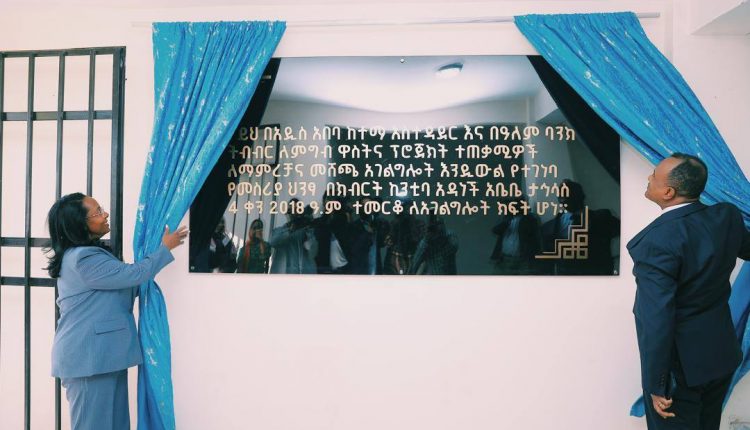 ይህ በአዲስ አበባ ከተማ አስተዳደር እና በዓለም ባንክ
ትብብር ለምግብ ዋስትና ፕሮጀክት ተጠቃሚዎች
ለማምረቻና መሸጫ አገልግሎት እንዲውል የተገነባ
የመስሪያ ህንፃ በክብርት ከንቲባ አዳነች አቤቤ ታኅሳስ
4 ቀን 2018 ዓ.ም ተመርቆ ለአገልግሎት ክፍት ሆነ።